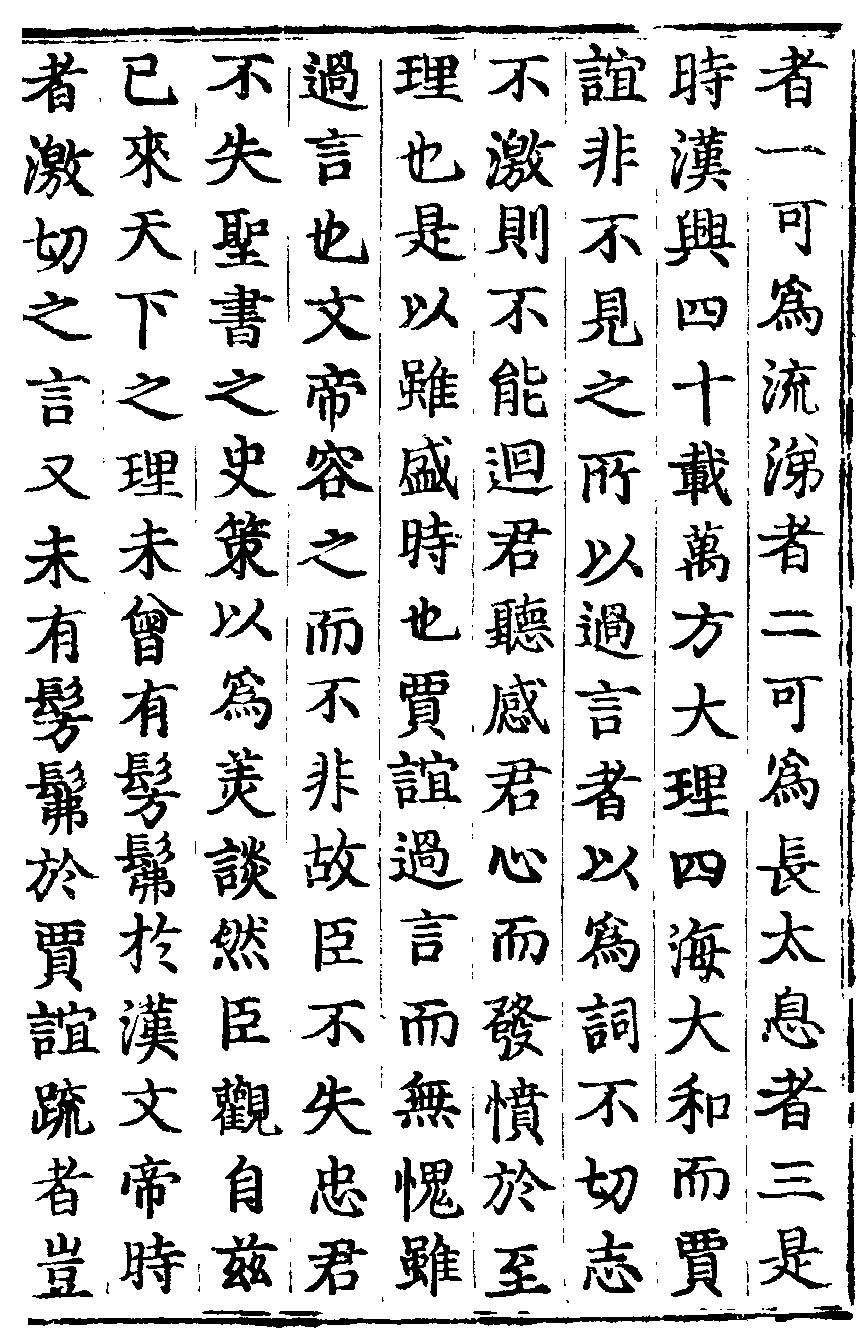 者一可爲流涕者二可爲長太息者三是
時漢興四十載萬方大理四海大和而賈
誼非不見之所以過言者以爲詞不切志
不激則不能迴君聽感君心而發憤於至
理也是以雖盛時也賈誼過言而無愧雖
過言也文帝容之而不非故臣不失忠君
不失聖書之史策以爲美談然臣觀自兹
已來天下之理未曾有髣髴於漢文帝時
者激切之言又未有髣髴於賈誼疏者豈